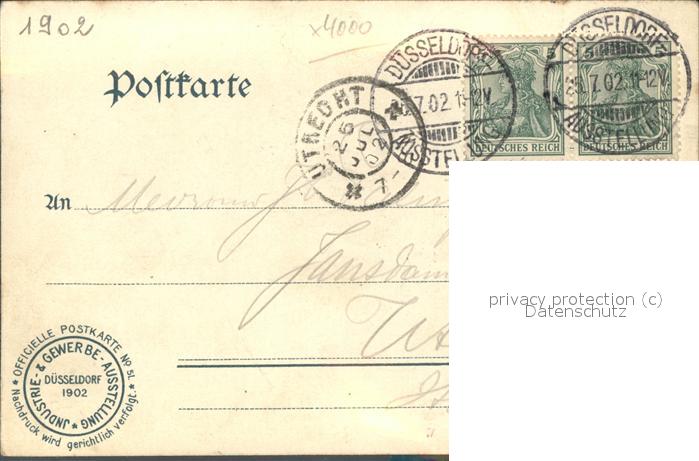 1902
x4000
Postkarte
DÜSSELDORF
7.02. 11-12V.
AUSSTELLUNG
DÜSSELDORF
25.7.02. 11-12V.
AUSSTELLUNG
5
5
DEUTSCHES REICH
DEUTSCHES REICH
UTRECHT
26
JUL
02
7-
An
Jansdam
privacy protection (c)
Datenschutz
OFFICIELLE POSTKARTE No 51.
JNDUSTRIE- & GEWERBE-AUSSTELLUNG
DÜSSELDORF
1902
Nachdruck wird gerichtlich verfolgt.